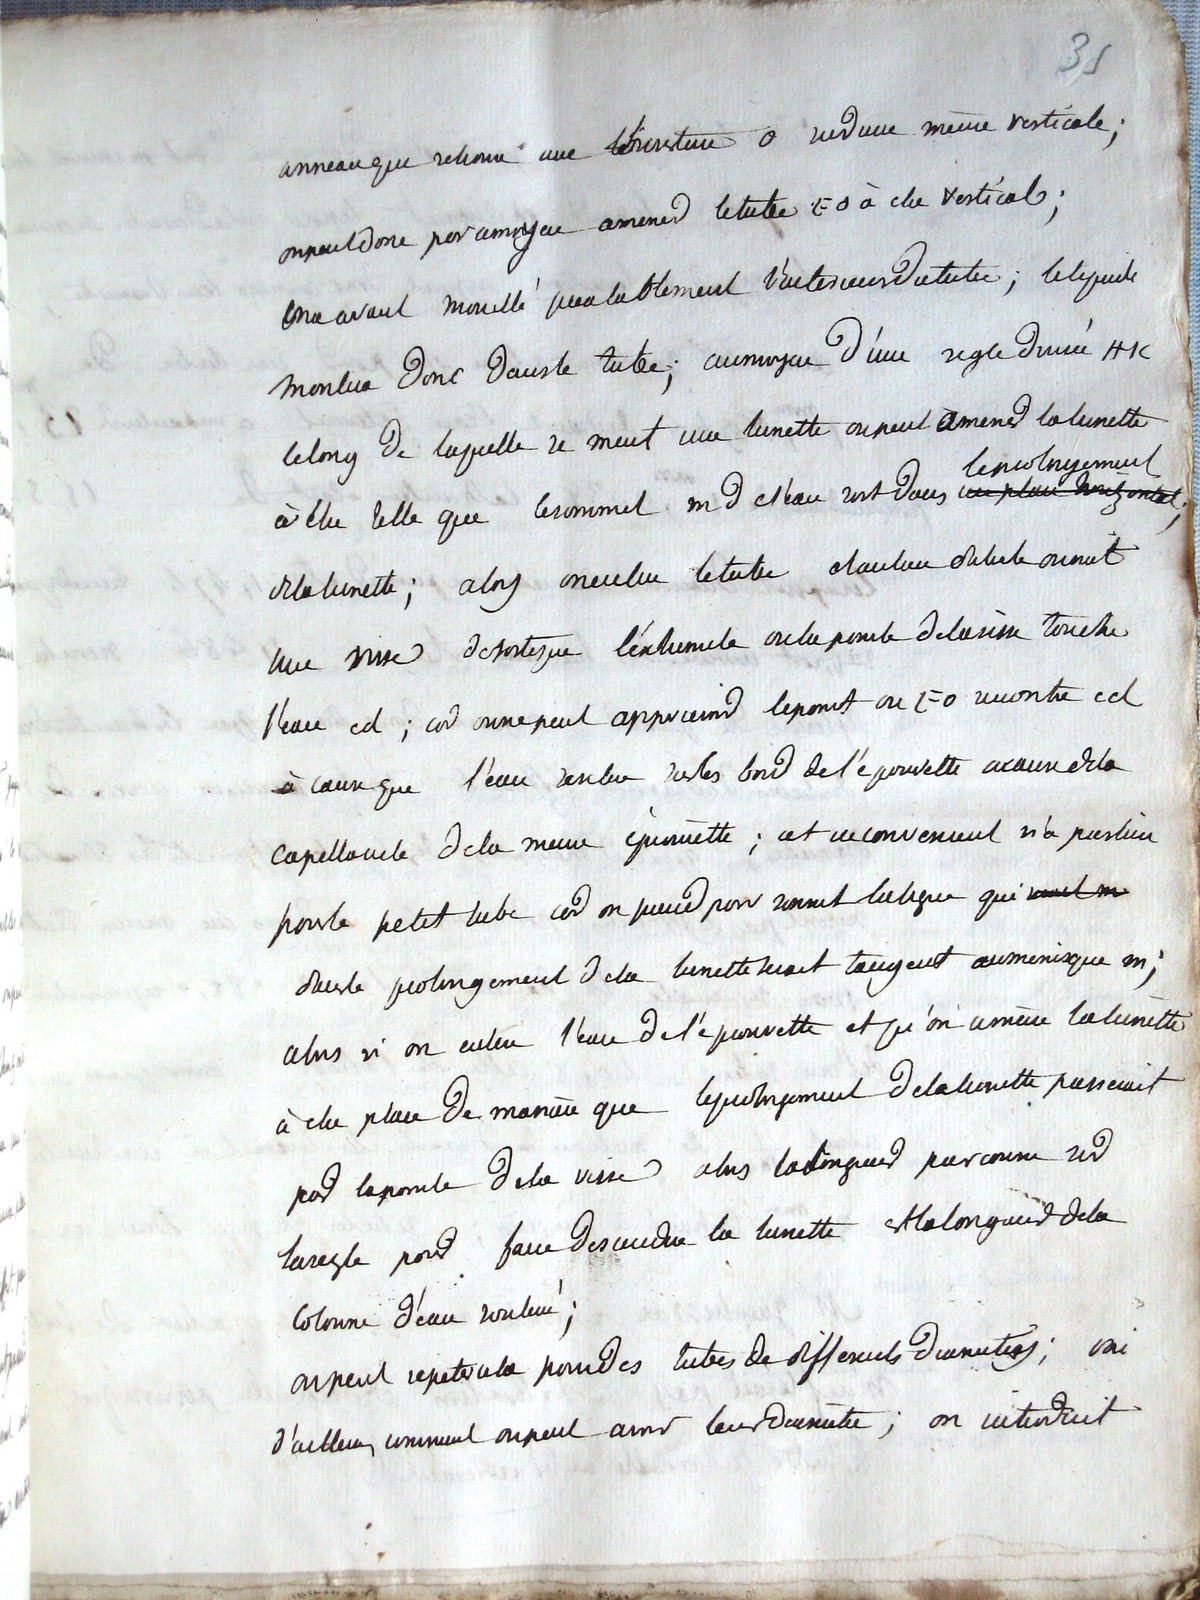 31
anneau que retienne une l'ouverture o sur une même verticale;
on peut donc par ce moyen amener le tube EO à être vertical;
on a avant mouillé préalablement l'intérieur du tube; le liquide
montera donc dans le tube; au moyen d'une regle divisée HK
le long de laquelle se meut une lunette on peut amener la lunette
à être telle que le sommet m de l'eau soit dans un plan horizontal;
le prolongement
de la lunette; alors on enleve le tube et au lieu du tube on met
une visse de sorte que l'éxtremité ou la pointe de la visse touche
l'eau cd; car on ne peut apprecier le point ou EO rencontre cd
à cause que l'eau s'enleve sur les bord de l'éprouvette a cause de la
capillarité de la meme éprouvette; cet inconvenient n'a pas lieu
pour le petit tube car on prend pour sommet la ligne qui
dans le prolongement de la lunette serait tangent au menisque m;
alors si on enleve l'eau de l'éprouvette et qu'on amène la lunètte
à être placé de manière que le prolongement de la lunette passerait
par la pointe de la visse alors la longueur parcourue sur
la regle pour faire descendre la lunette est la longueur de la
colonne d'eau soulevé;
on peut repeter cela pour des tubes de differents diametres; voici
d'ailleurs comment on peut avoir leur diamètre; on introduit